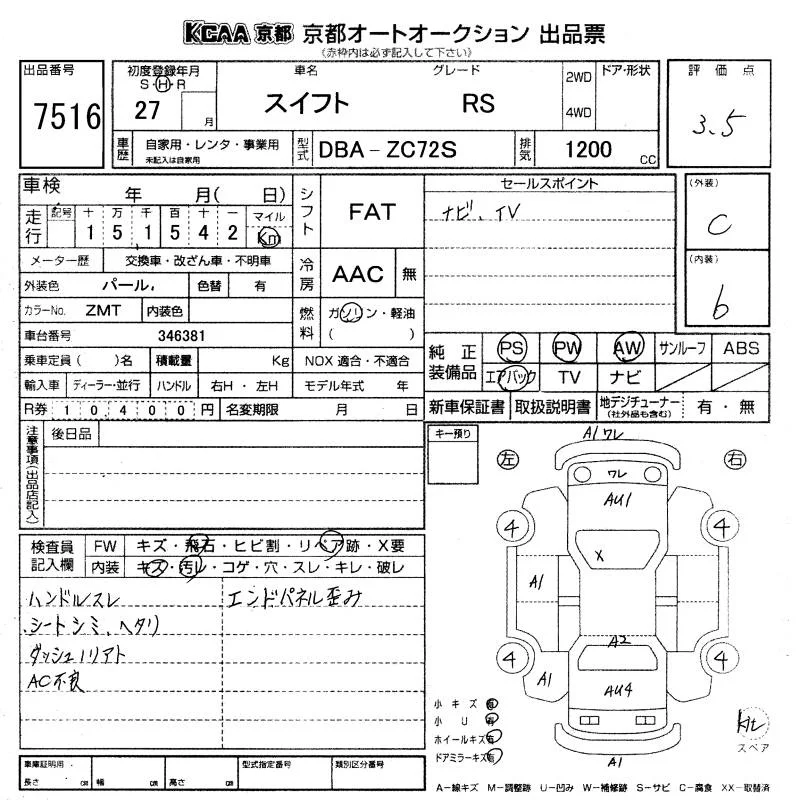 KCAA 京都 京都オートオークション 出品票
(赤枠内は必ず記入して下さい)
出品番号
7516
初度登録年月
S・H・R
27 月
車名
スイフト
グレード
RS
2WD
4WD
ドア・形状
評価点
3.5
車歴
自家用・レンタ・事業用
未記入は自家用
型式
DBA-ZC72S
排気
1200 CC
車検 年 月( 日)
走行
記号 十 万 千 百 十 一 マイル
1 5 1 5 4 2 Km
メーター歴 交換車・改ざん車・不明車
外装色 パール. 色替 有
カラーNo. ZMT 内装色
車台番号 346381
乗車定員( )名 積載量 Kg
輸入車 ディーラー・並行 ハンドル 右H・左H
R券 10400円 名変期限 月 日
シフト FAT
冷房 AAC 無
燃料 ガソリン・軽油
( )
NOX 適合・不適合
モデル年式 年
セールスポイント
ナビ、TV
(外装)
C
(内装)
b
純正装備品
PS PW AW サンルーフ ABS
エアバック TV ナビ
新車保証書 取扱説明書 地デジチューナー
(社外品も含む)
有・無
注意事項(出品店記入)
後日品
キー預り
検査員記入欄
FW キズ・飛石・ヒビ割・リペア跡・X要
内装 キズ・汚レ・コゲ・穴・スレ・キレ・破レ
ハンドルスレ
シートシミ、ヘタリ
ダッシュノリアト
AC不良
エンドパネル歪み
左
右
A1 ワレ
ワレ
AU1
4
4
X
A1
A2
4
4
A1
AU4
A1
小キズ 有
小U 有
ホイールキズ 有
ドアミラーキズ 有
スペア
車庫証明用・
長さ cm 幅 cm 高さ cm
型式指定番号
類別区分番号
A-線キズ M-調整跡 U-凹み W-補修跡 S-サビ C-腐食 XX-取替済